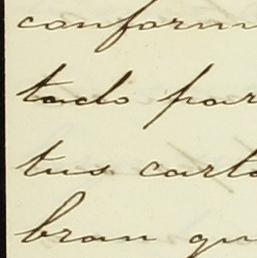 conform
todo par
tus carta
bran qu